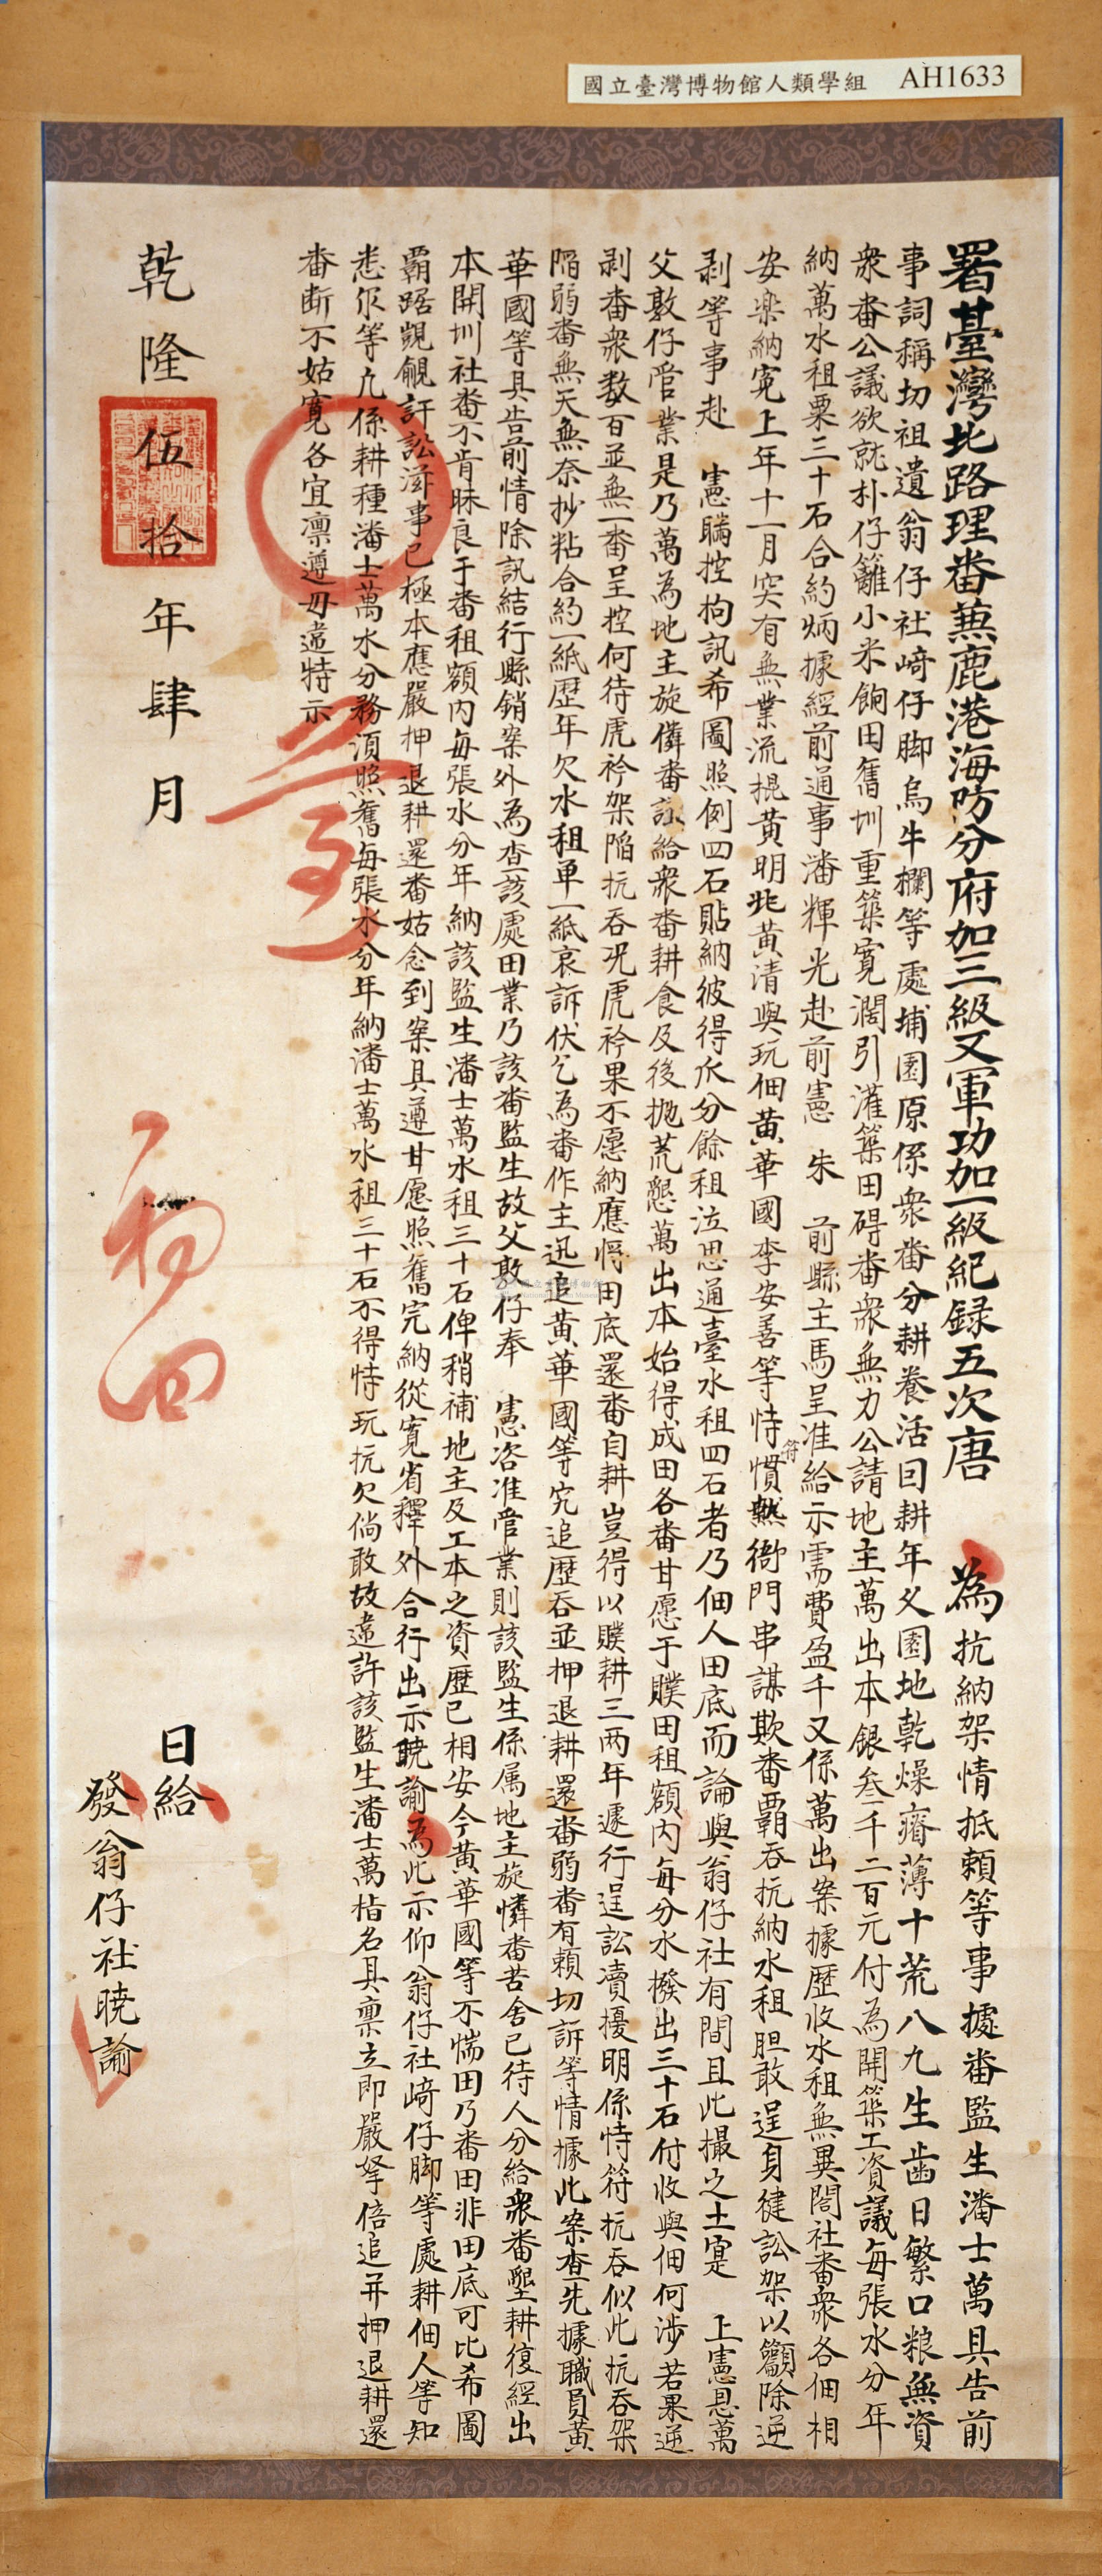 國立臺灣博物館人類學組 AH1633
署臺灣北路理番兼鹿港海防分府加三級又軍功加一級紀録五次唐 為抗納架情抵賴等事據番監生潘士萬具告前
事詞稱切祖遺翁仔社﨑仔脚烏牛欄等處埔園原係衆番分耕養活囙耕年久園地乾燥瘠薄十荒八九生齒日繁口粮無資
衆番公議欲就朴仔籬小米餉田舊圳重築寬濶引灌築田碍番衆無力公請地主萬出本銀叁千二百元付為開築工資議每張水分年
納萬水租粟三十石合約炳據經前通事潘輝光赴前憲 朱 前縣主馬呈准給示需費盈千又係萬出案據歷收水租無異閤社番衆各佃相
安樂納寃上年十一月突有無業流棍黃明兆黃清與玩佃黃華國李安善等恃符慣熟衙門串謀欺番霸吞抗納水租胆敢逞身健訟架以籲除逆
剥等事赴 憲瞞控拘訊希圖照例四石貼納彼得爪分餘租泣思通臺水租四石者乃佃人田底而論與翁仔社有間且此撮之土寔 上憲恩萬
父敦仔管業是乃萬為地主旋憐番誼給衆番耕食及後拋荒懇萬出本始得成田各番甘愿于贌田租額內每分水撥出三十石付收與佃何涉若果逆
剥番衆数百並無一番呈控何待虎衿架陷抗吞况虎衿果不愿納應将田底還番自耕豈得以贌耕三两年遽行逞訟瀆擾明係恃符抗吞似此抗吞架
陷弱番無天無奈抄粘合約一紙歷年欠水租单一紙哀訴伏乞為番作主迅追黃華國等究追歷吞並押退耕還番弱番有賴切訴等情據此案查先據職員黃
華國等具告前情除訊結行縣銷案外為查該處田業乃該番監生故父敦仔奉 憲咨准管業則該監生係属地主旋憐番苦舍已待人分給衆番墾耕復經出
本開圳社番不肯昧良于番租額內每張水分年納該監生潘士萬水租三十石俾稍補地主及工本之資歷已相安今黃華國等不惴田乃番田非田底可比希圖
霸踞覬覦訐訟滋事已極本應嚴押退耕還番姑念到案具遵甘愿照舊完納從寬省釋外合行出示曉諭為此示仰翁仔社﨑仔脚等處耕佃人等知
悉尔等凢係耕種潘士萬水分務湏照舊每張水分年納潘士萬水租三十石不得恃玩抗欠倘敢故違許該監生潘士萬指名具禀立即嚴拏倍追并押退耕還
番断不姑寬各宜凛遵毋違特示
遵
乾隆伍拾年肆月 初四 日給
發翁仔社曉諭